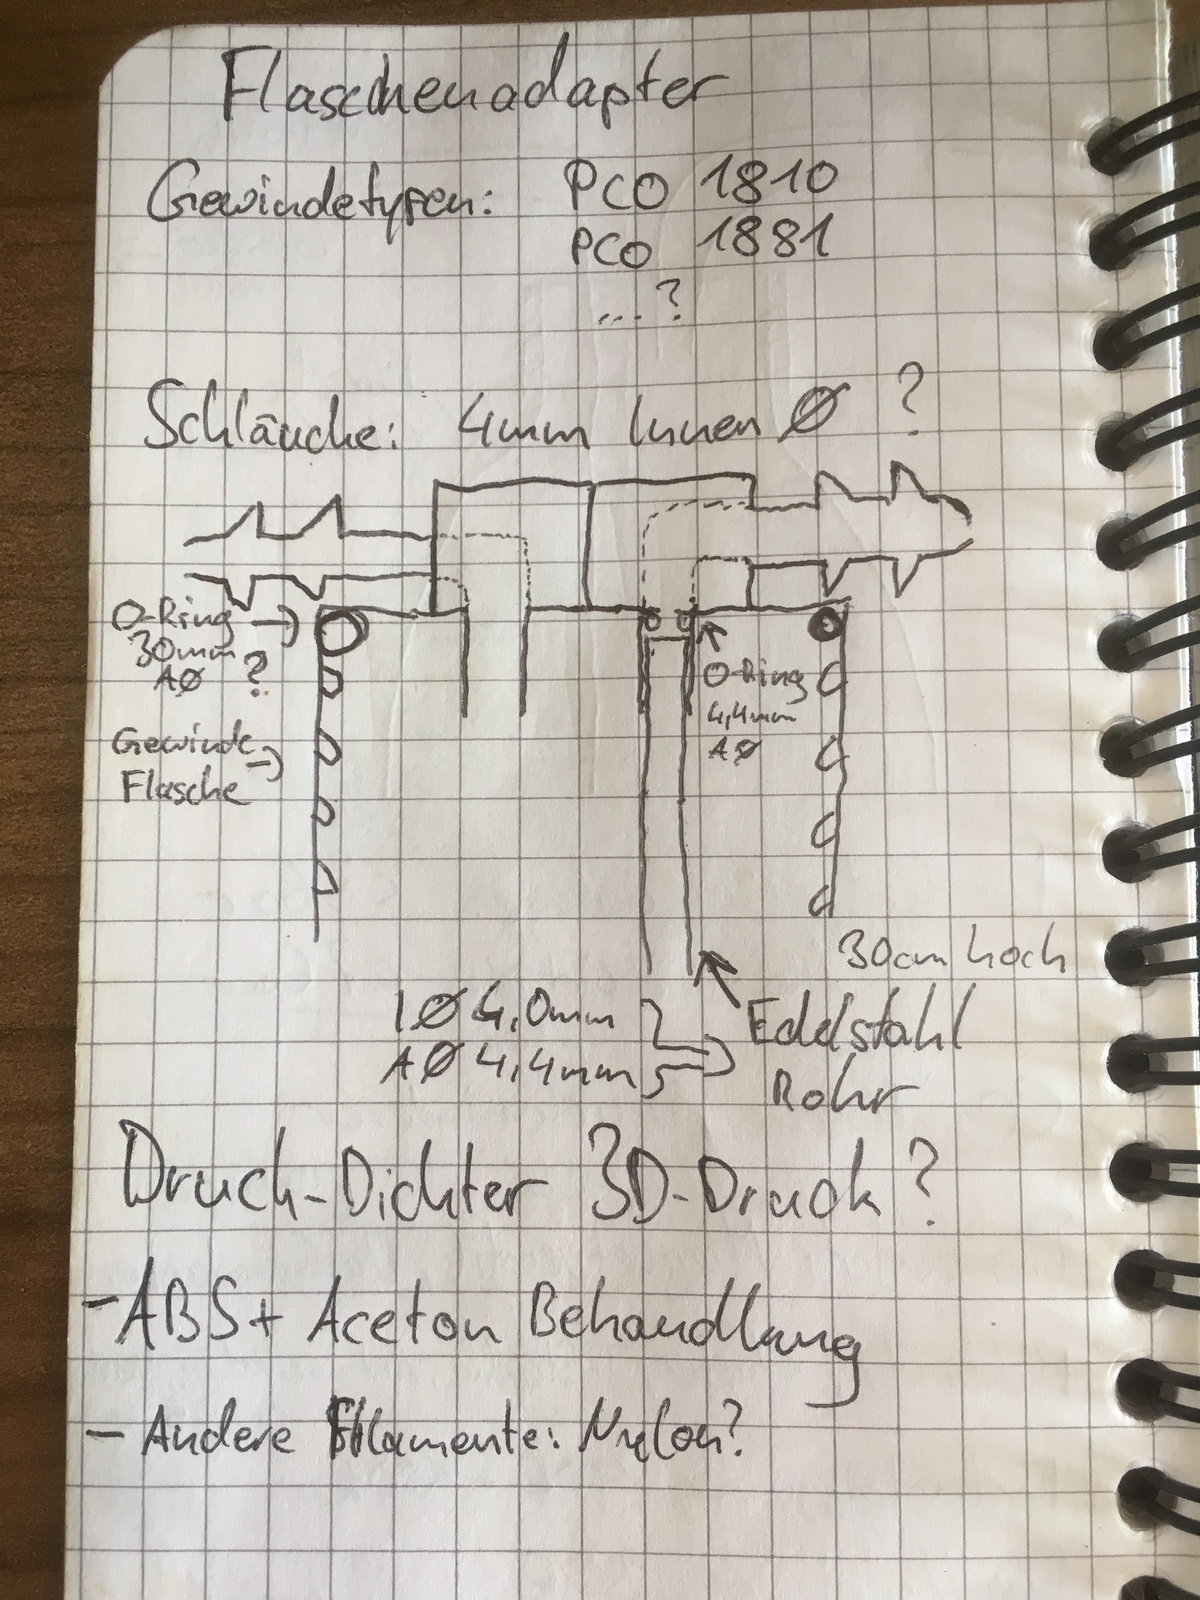 Flaschenadapter
Gewindetypen: PCO 1810
PCO 1881
...?
Schläuche: 4mm Innen Ø ?
O-Ring
30mm
AØ ?
O-Ring
4,4mm
AØ
Gewinde
Flasche
30cm hoch
IØ 4,0mm
AØ 4,4mm
Edelstahl
Rohr
Druck-Dichter 3D-Druck?
- ABS + Aceton Behandlung
- Andere Filamente: Nylon?